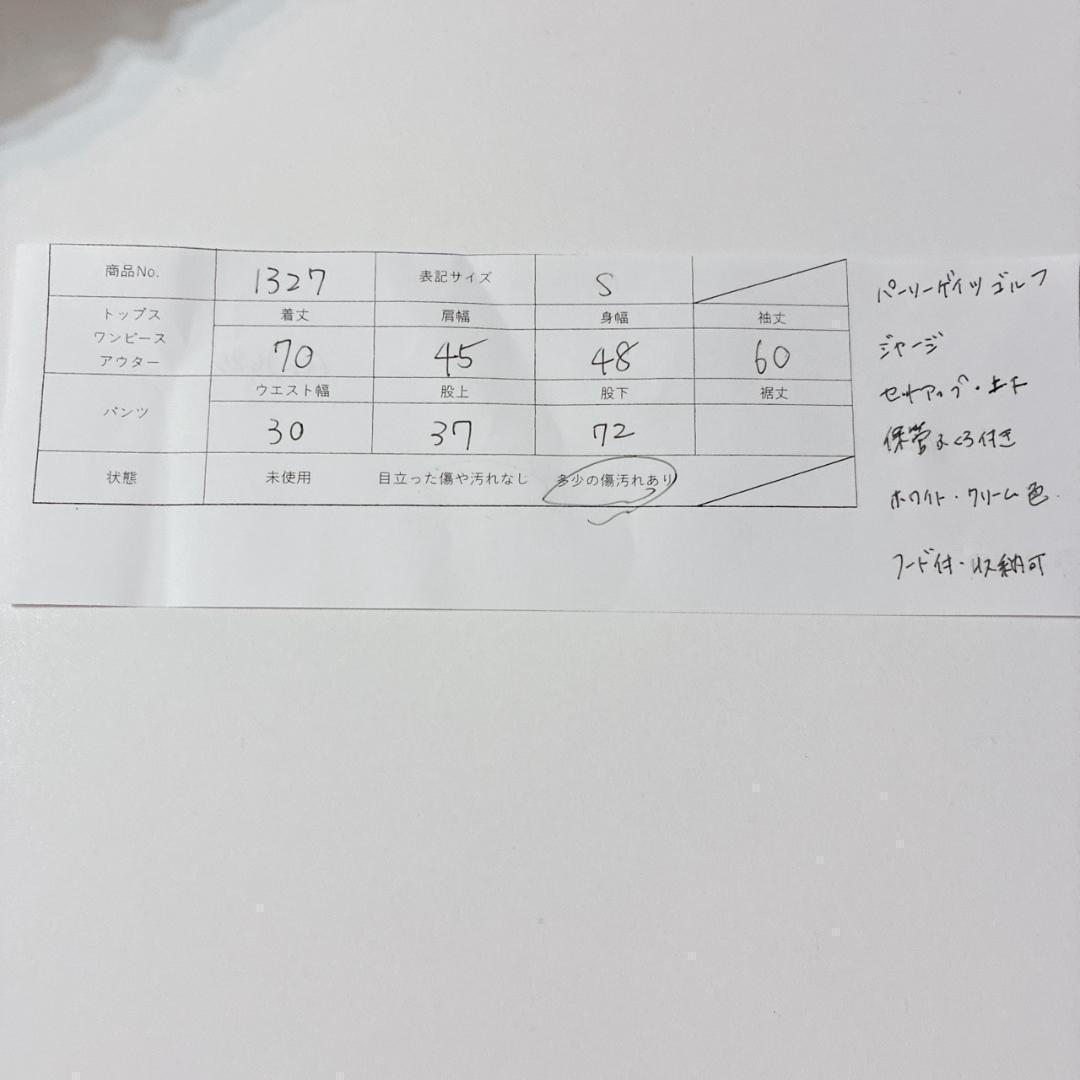 商品No. 1327 表記サイズ S
トップス ワンピース アウター 着丈 肩幅 身幅 袖丈
70 45 48 60
パンツ ウエスト幅 股上 股下 裾丈
30 37 72
状態 未使用 目立った傷や汚れなし 多少の傷汚れあり
パーリーゲイツ ゴルフ
ジャージ
セットアップ・上下
保管ふくろ付き
ホワイト・クリーム色
フード付・収納可